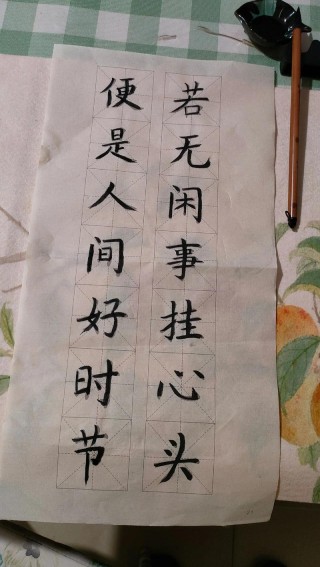 若无闲事挂心头
便是人间好时节